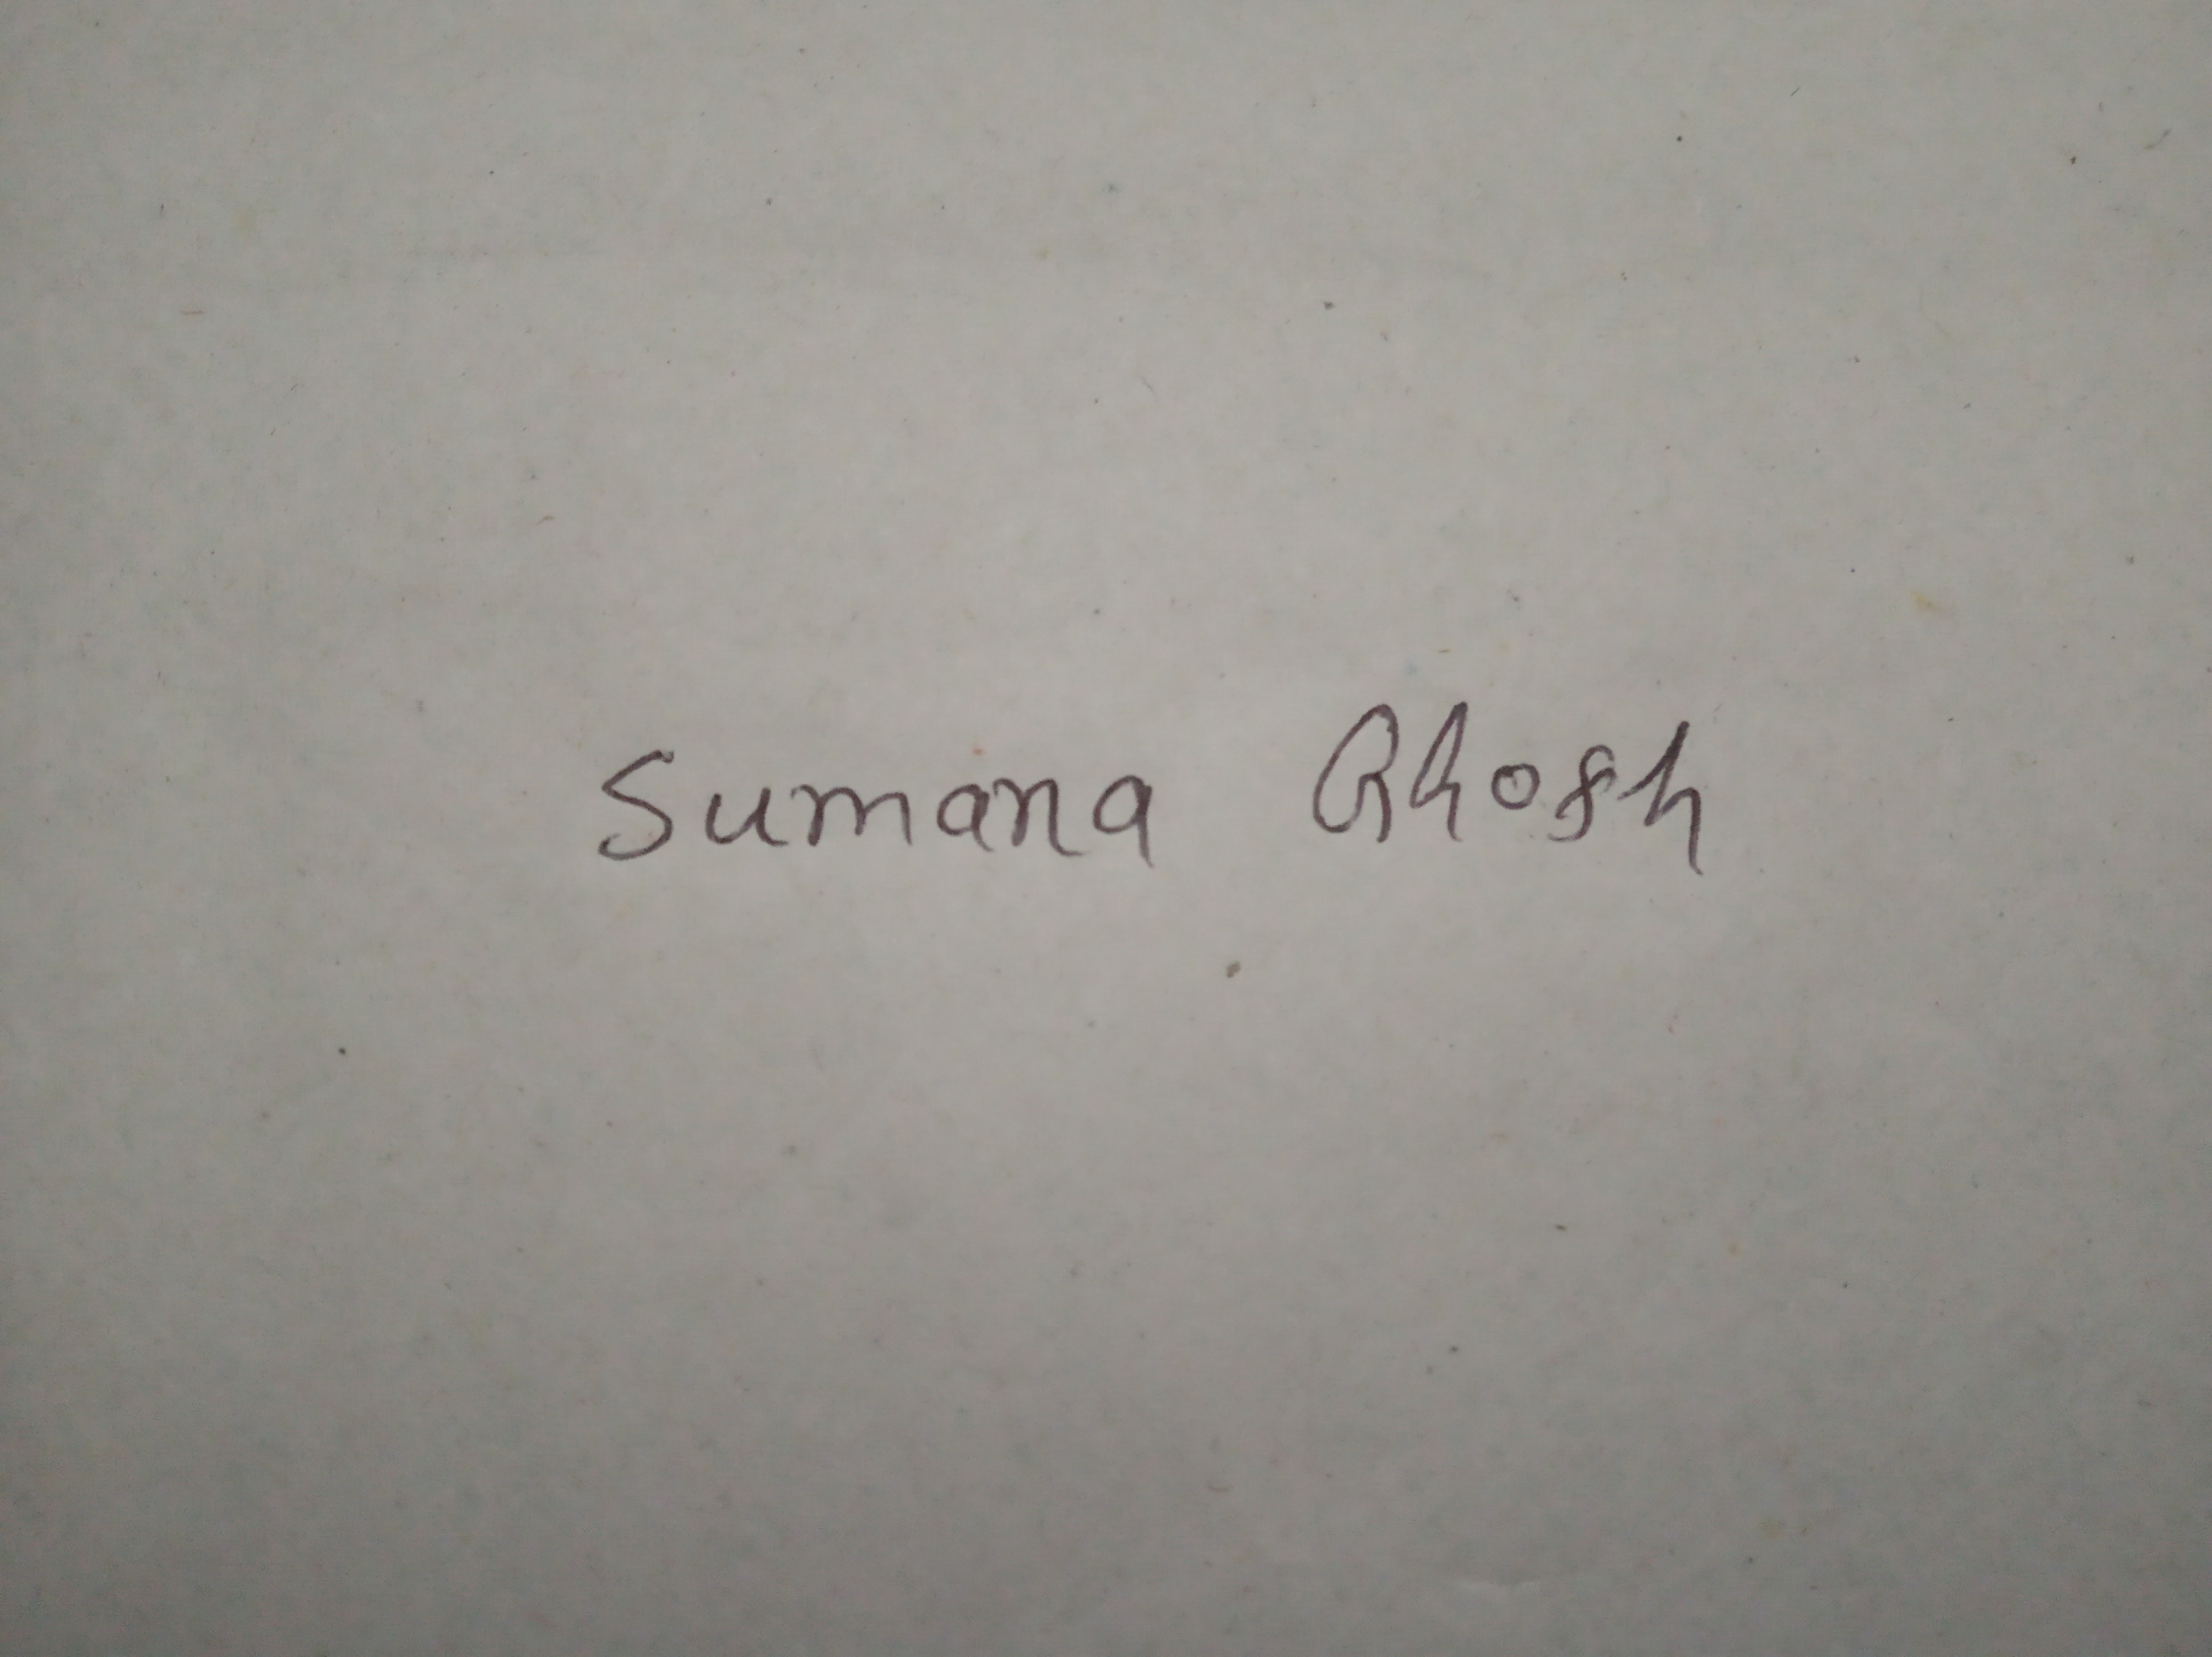 Sumana Ghosh